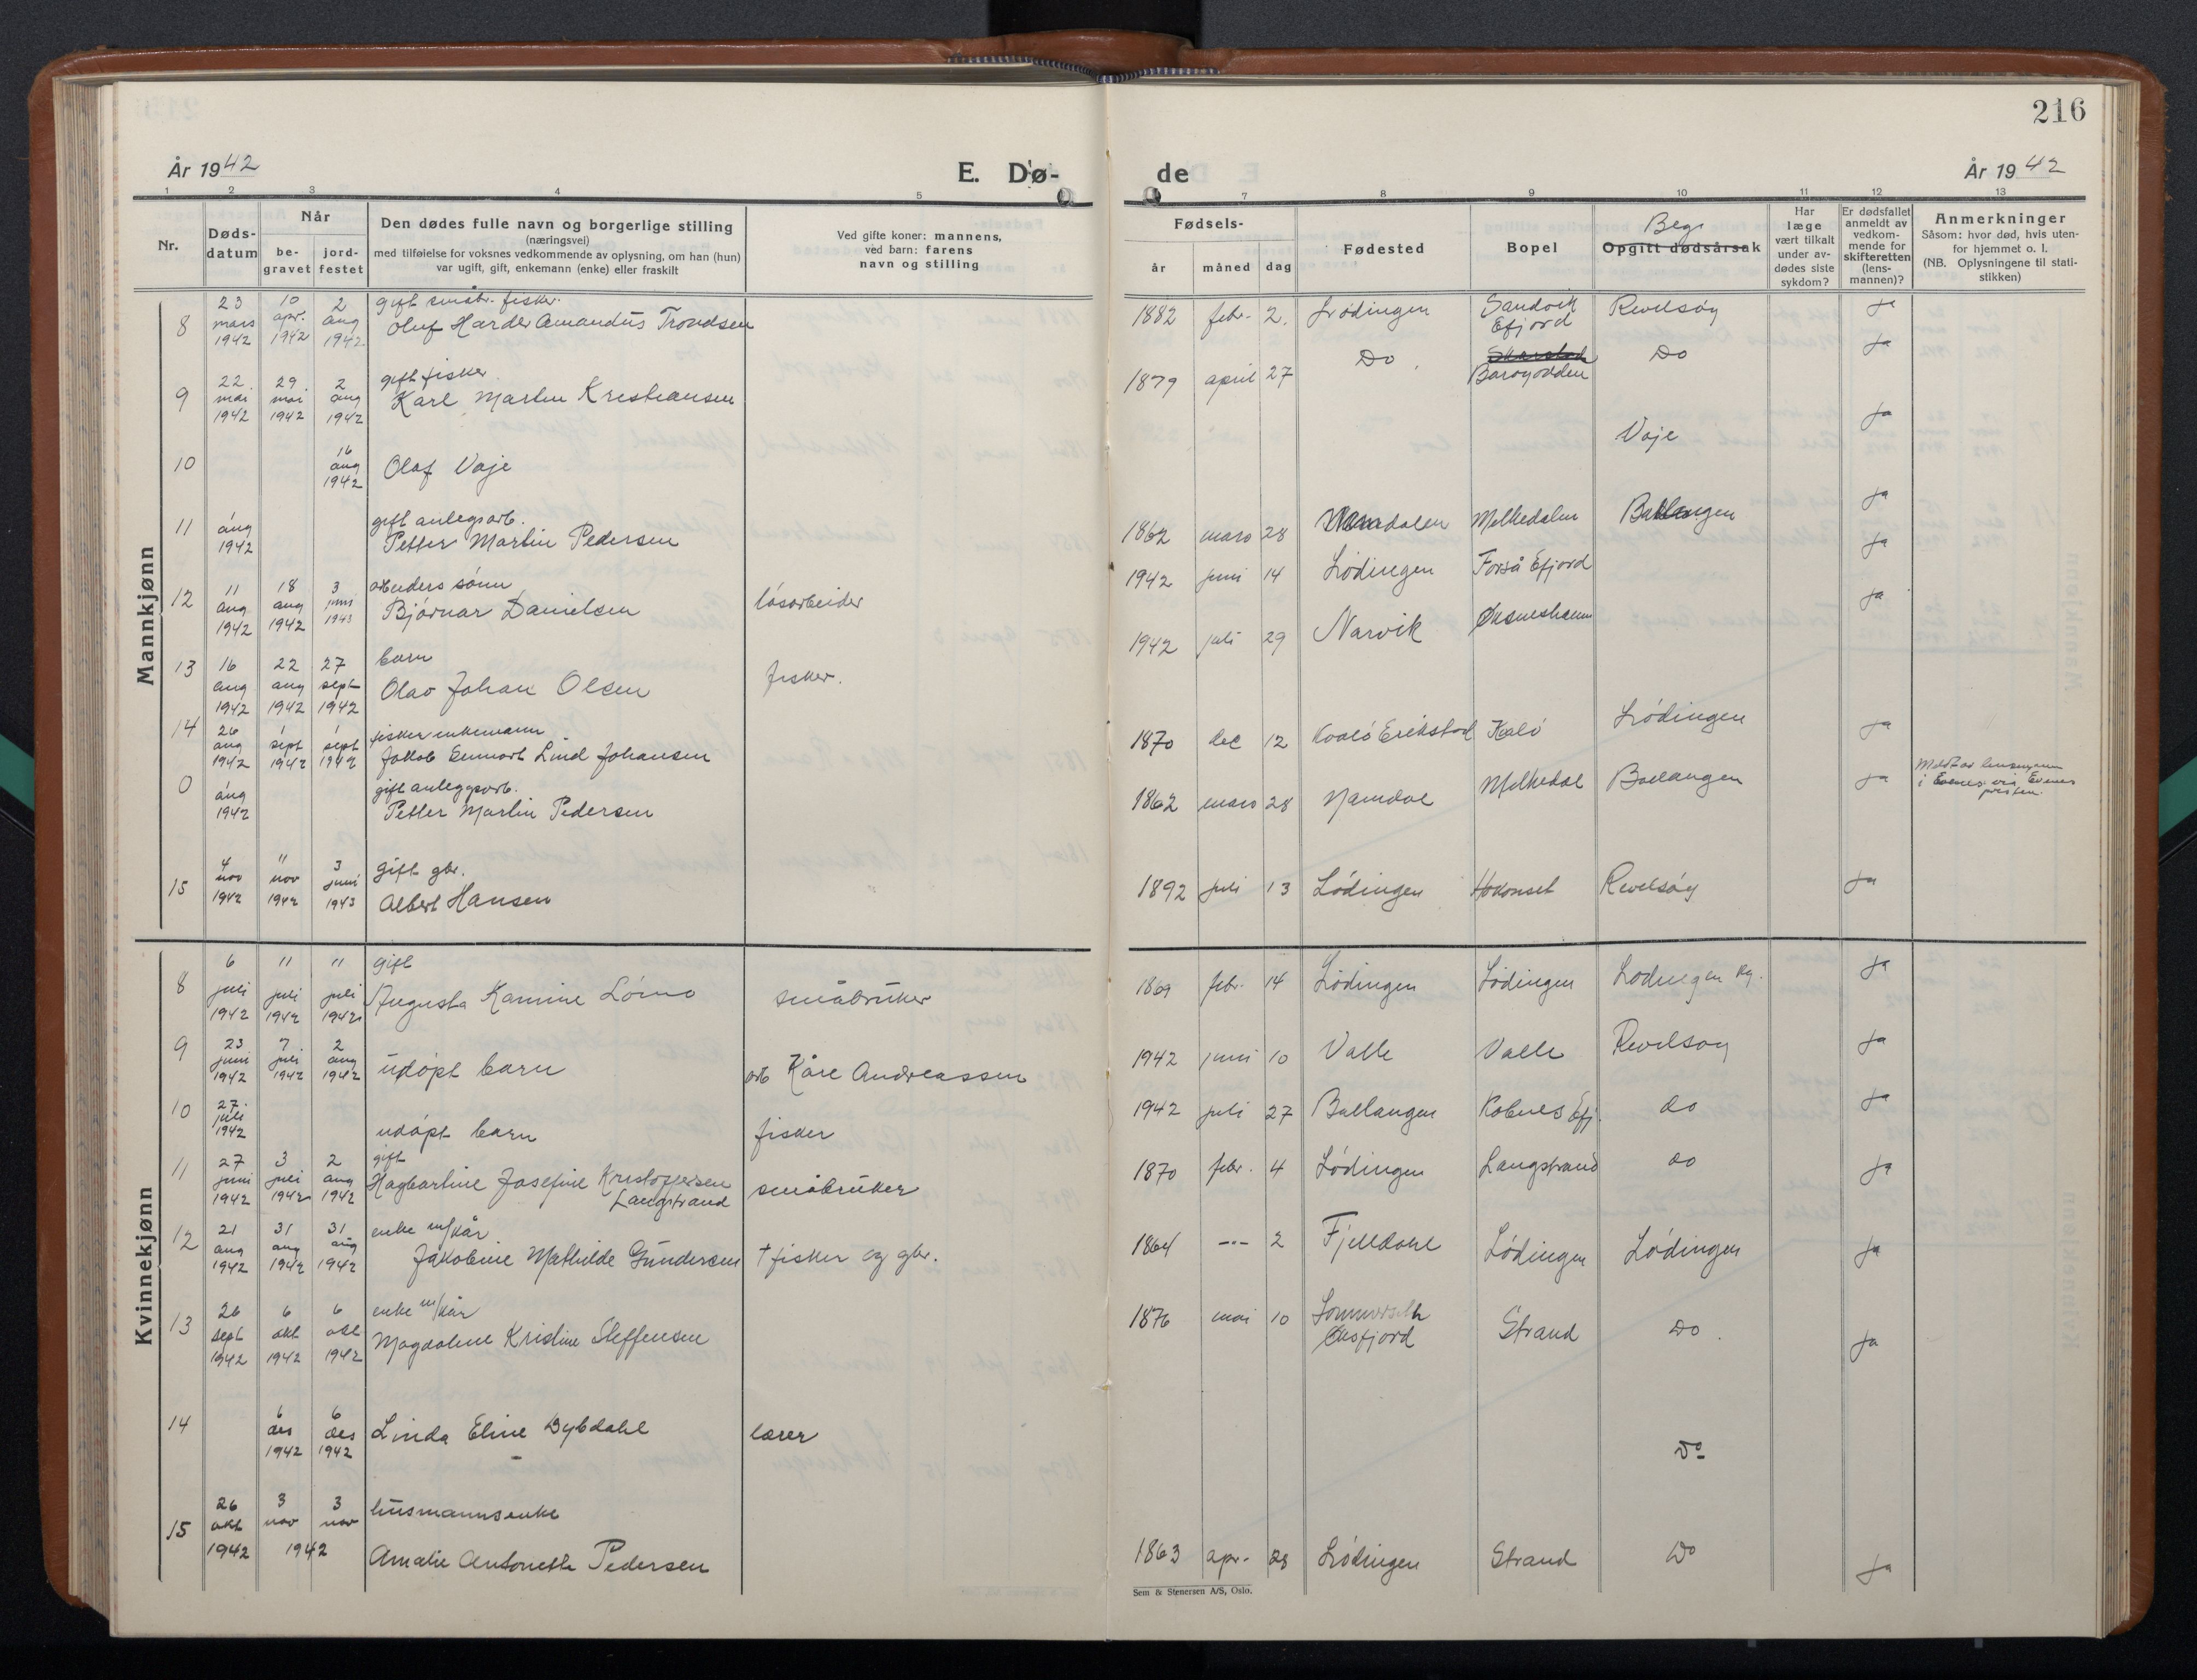 216
År 1942
E. Dø-
de
År 1942
1 2 3 4 5 7 8 9 10 11 12 13
Nr.
Døds-
datum
Når
be-
gravet
jord-
festet
Den dødes fulle navn og borgerlige stilling
(næringsvei)
med tilføielse for voksnes vedkommende av oplysning, om han (hun)
var ugift, gift, enkemann (enke) eller fraskilt
Ved gifte koner: mannens,
ved barn: farens
navn og stilling
Fødsels-
år måned dag
Fødested
Bopel
Begr
Opgitt dødsårsak
Har
læge
vært tilkalt
under av-
dødes siste
sykdom?
Er dødsfallet
anmeldt av
vedkom-
mende for
skifteretten
(lens-
mannen)?
Anmerkninger
Såsom: hvor død, hvis uten-
for hjemmet o. l.
(NB. Oplysningene til stati-
stikken)
Mannkjønn
8 23 mars 1942 10 apr. 1942 2 aug 1942 gift småbr. fisker.
Oluf Harder Amandus Trondsen 1882 febr. 2. Lødingen Sandvik Efjord Revelsøy ja
9 22. mai 1942 29. mai 1942 2 aug 1942 gift fisker
Karl Martin Kristiansen 1879 april 27 Do Barøyodden Do ja
10 16 aug 1942 Olaf Vaje Vaje ja
11 aug 1942 gift anlegsarb.
Petter Martin Pedersen 1862 mars 28 Namdalen Melkedalen Ballangen ja
12 11 aug 1942 18 aug 1942 3 juni 1943 arbeiders sønn
Bjørnar Danielsen løsarbeider 1942 juni 14 Lødingen Forså Efjord ja
13 16 aug 1942 22 aug 1942 27 sept 1942 barn
Olav Johan Olsen fisker. 1942 juli 29 Narvik Øksneshamn ja
14 26 aug 1942 1 sept 1942 1 sept 1942 fisker enkemann
Jakob Enmort Lind Johansen 1870 dec 12 Kvalø Erikstad Kvalø Lødingen ja
0 aug 1942 gift anleggsarb.
Petter Martin Pedersen 1862 mars 28 Namdal Melkedal Ballangen ja
Meldt av lensmann
i Evenes via Evenes
presten.
15 4 nov 1942 11 nov 1942 3 juni 1943 gift gbr.
Albert Hansen 1892 juli 13 Lødingen Hokonset Revelsøy ja
Kvinnekjønn
8 6 juli 1942 11 juli 1942 11 juli 1942 gift
Augusta Kamine Lømo småbruker 1869 febr. 14 Lødingen Lødingen Lødingen ja
9 23 juni 1942 7 juli 1942 2 aug 1942 udøpt barn arb Kåre Andreassen 1942 juni 10 Valle Valle Revelsøy ja
10 27. juli 1942 udøpt barn fisker 1942 juli 27 Ballangen Kobnes Efj. do ja
11 27 juni 1942 3 juli 1942 2 aug 1942 gift
Hagbartine Josefine Kristoffersen
Langstrand småbruker 1870 febr. 4 Lødingen Langstrand do ja
12 21 aug 1942 31 aug 1942 31 aug 1942 enke m/kår
Jakobine Mathilde Gundersen † fisker og gbr. 1864 --- 2 Fjelldahl Lødingen Lødingen ja
13 26 sept 1942 6 okt 1942 6 okt 1942 enke m/kår
Magdalene Kristine Steffensen 1876 mai 10 Sommerseth
Øksfjord Strand Do. ja
14 6 des 1942 6 des 1942 Linda Eline Dybdahl lærer Do
15 26 okt 1942 3 nov 3 nov 1942 husmannsenke
Amalie Antonette Pedersen 1863 apr. 28 Lødingen Strand Do ja
Sem & Stenersen A/S, Oslo.